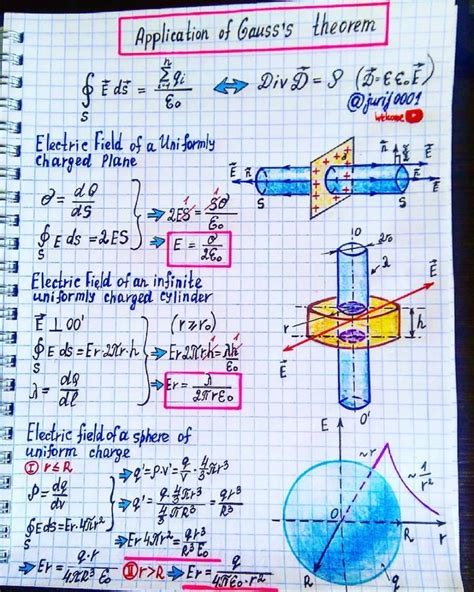 Application of Gauss's theorem
∮ E⃗ dS⃗ = Σqᵢ/ε₀ ⟺ Div D⃗ = ρ (D⃗ = εε₀E⃗)
n
i=1
S
@jurij0001
Welcome
Electric Field of a Uniformly
charged Plane
σ = dQ/dS
∮ E ds = 2ES
S
⇒ 2ES = Sσ/ε₀
1 1
E = σ/2ε₀
E⃗ n⃗ σ n⃗ E⃗
S S
Electric Field of an infinite
uniformly charged cylinder
E⃗ ⊥ OO' (r ≥ r₀)
∮ E ds = Er·2πr·h ⇒ Er2πrh = λh/ε₀
S
1 1
λ = dQ/dl
⇒ Er = λ/2πrε₀
O 2r₀
λ
E⃗
r h
E⃗
O'
Electric field of a sphere of
uniform charge
I r ≤ R
ρ = dq/dv
∮ E ds = Er·4πr²
S
⇒ q' = ρ·v' = q/v · 4/3 πr³
q' = q·4/3 πr³ / 4/3 πR³ = qr³/R³
⇒ Er4πr² = qr³/R³ε₀
⇒ Er = q·r/4πR³ε₀
II r > R ⇒ Er = q/4πε₀·r²
E
~r ~1/r²
O R r
R q